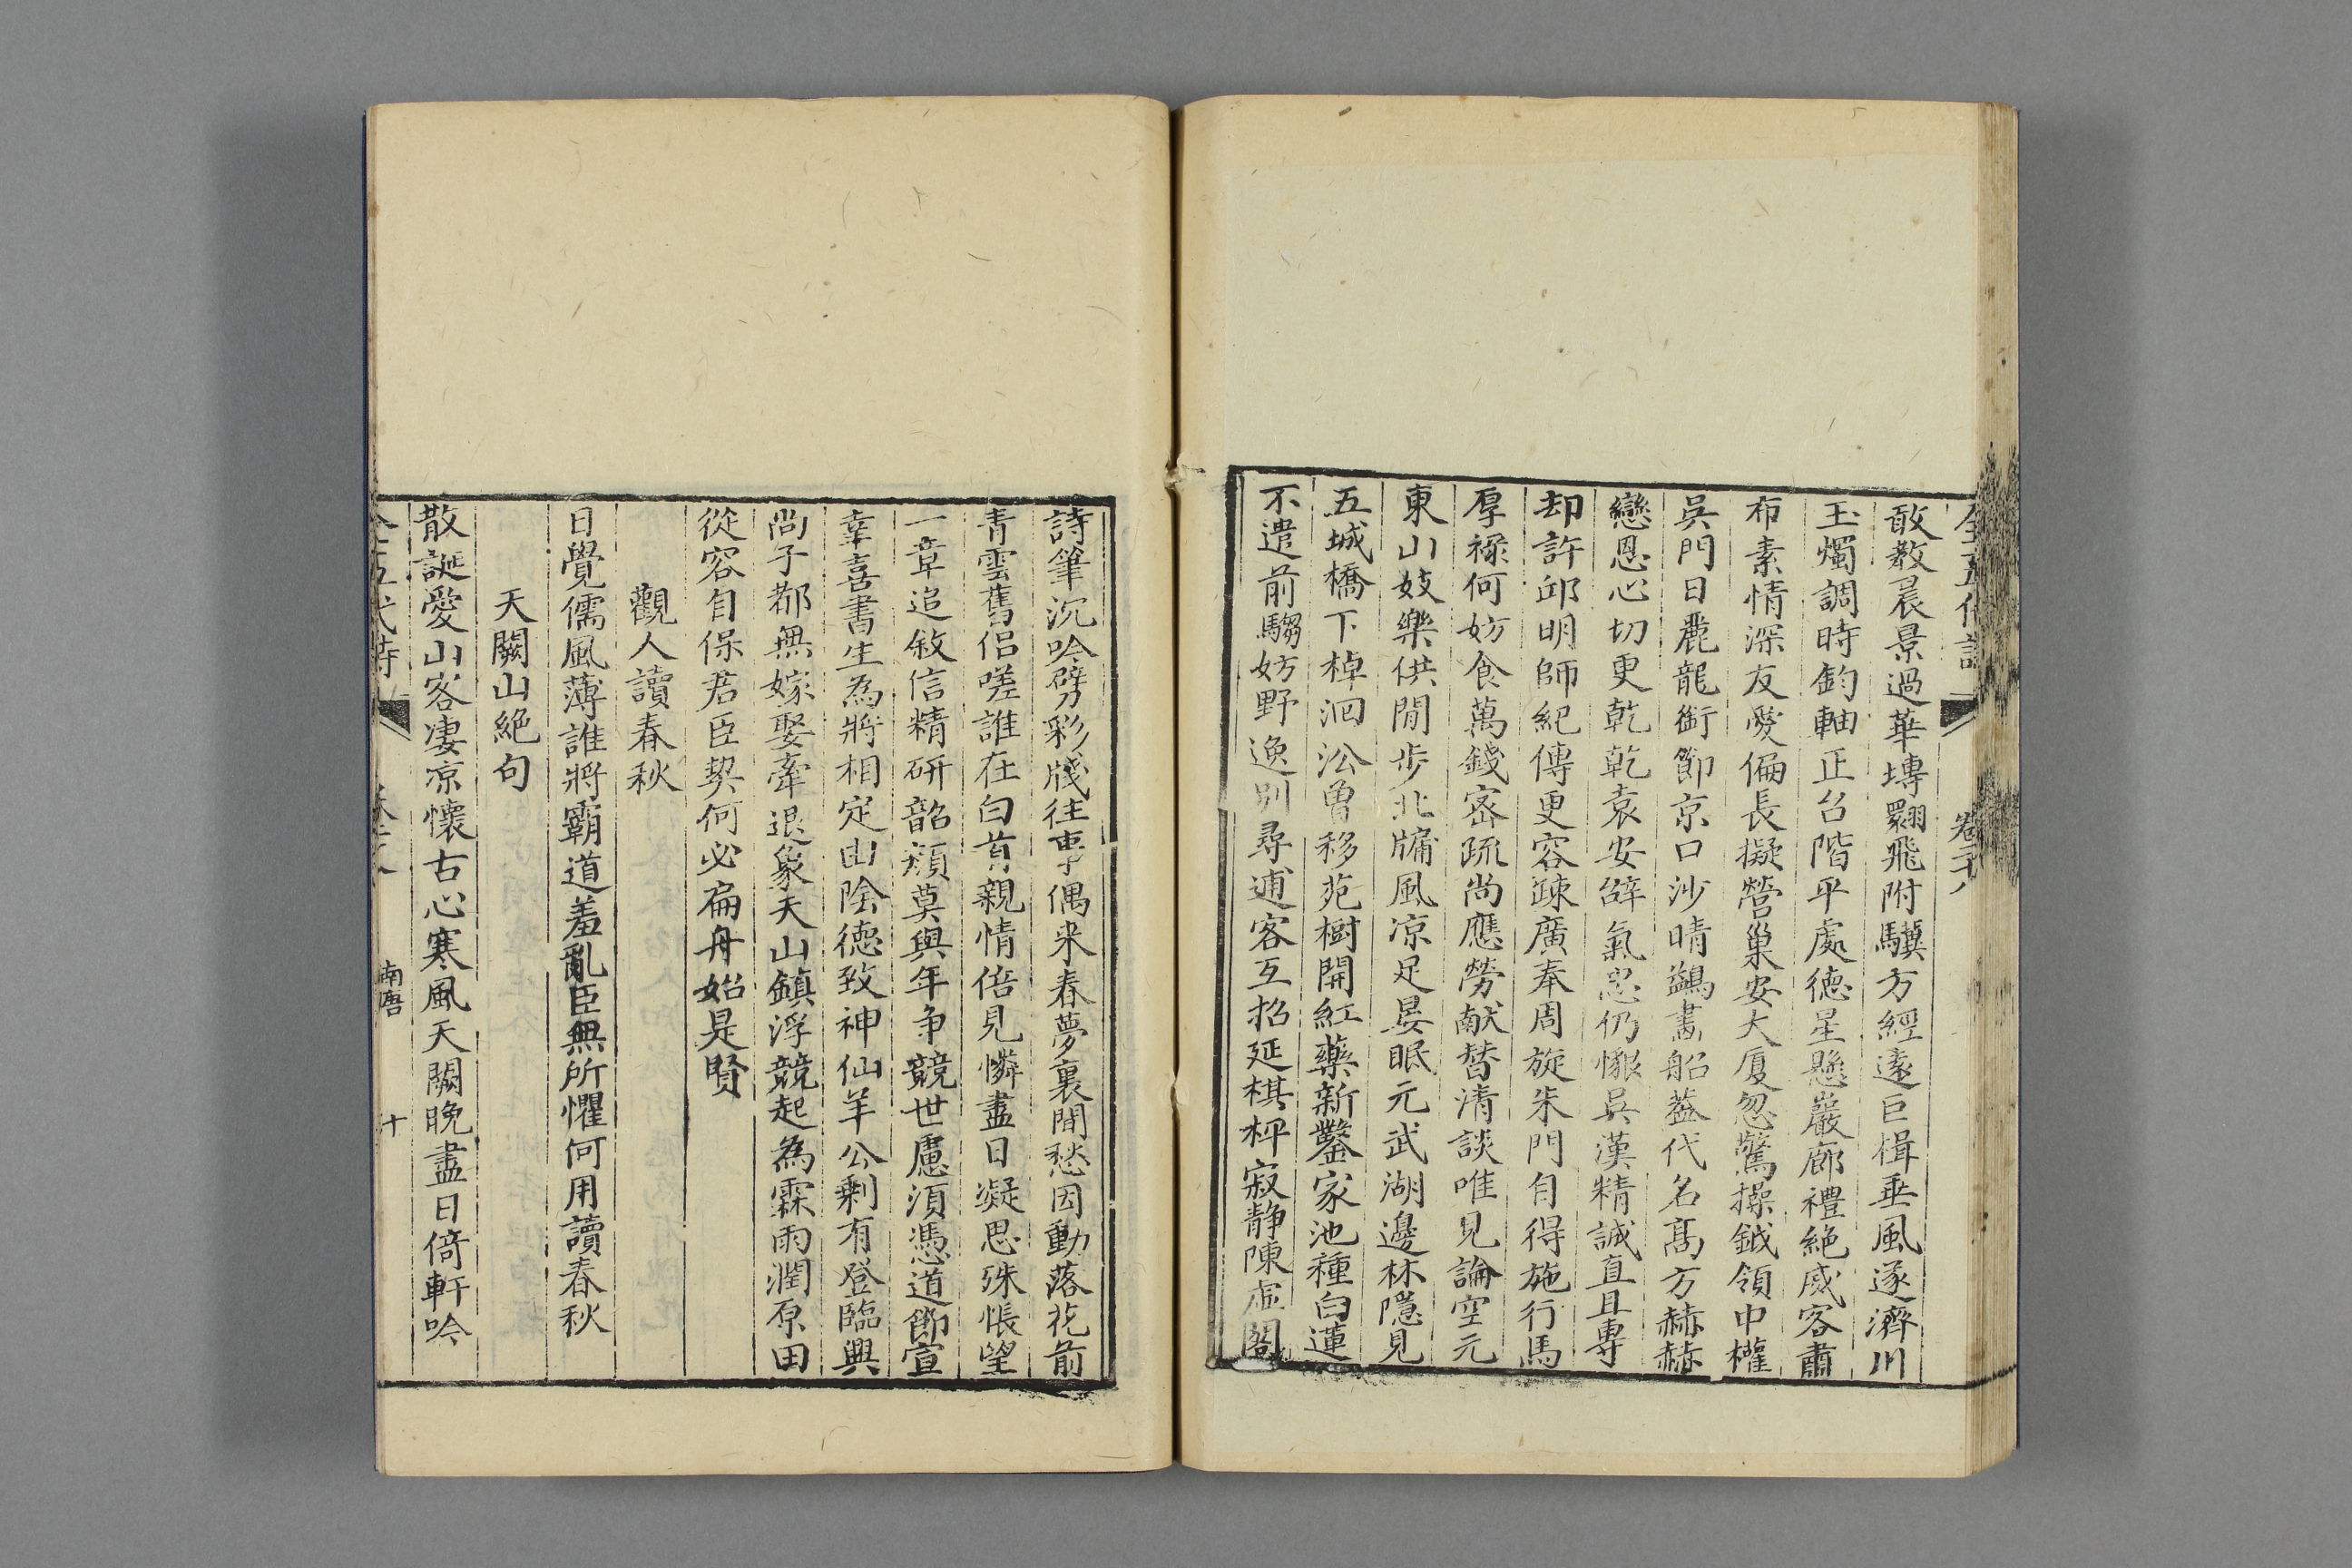 全五代詩 卷二十八
敢教晨景過華塼翾飛附驥方經遠巨楫乗風遂濟川
玉燭調時鈞軸正台階平處德星懸巖廊禮絶威客肅
布素情深友愛偏長擬營巢安大厦忽驚操鉞領中權
吳門日麗龍銜節京口沙晴鷁畵船蓋代名髙方赫赫
戀恩心切更乾乾袁安辭氣忠仍懇吳漢精誠直且專
却許邱明師紀傳更容踈廣奉周旋朱門自得施行馬
厚祿何妨食萬錢宻疏尚應勞献替清談唯見論空元
東山妓樂供閒歩北牖風凉足晏眠元武湖邊林隱見
五城橋下棹洄沿曾移苑樹開紅藥新鑿家池種白蓮
不遣前騶妨野逸别尋逋客互招延棋枰寂静陳虛閣
詩筆沉吟劈彩牋往事偶来春夢裏閒愁因動落花前
青雲舊侣嗟誰在白首親情倍見憐盡日凝思殊悵望
一章追敘信精研韶頽莫與年争競世慮湏憑道節宣
幸喜書生為將相定由陰德致神仙羊公剩有登臨興
尚子都無嫁娶牽退象天山鎮浮競起為霖雨潤原田
從容自保君臣契何必扁舟始是賢
觀人讀春秋
日覺儒風薄誰將霸道羞亂臣無所懼何用讀春秋
天闕山絶句
散誕愛山客凄凉懷古心寒風天闕晩盡日倚軒吟
全五代詩 卷二十八 南唐 十